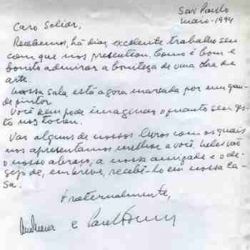 San Paulo
maio-1994
Caro Soliar,
Recebemos, há dias, excelente trabalho seu
com que nos presenteou. Como é bom e
bonito admirar a boniteza de uma obra de
arte.
Nossa sala está agora marcada por um gran-
de pintor.
Você nem pode imaginar o quanto seu ges-
to nos tocou.
Vão alguns de nossos livros com os quais
nos apresentamos melhor a você, beles vão
o nosso abraço, a nossa amizade e o de-
sejo de, em breve, recebê-lo em nossa ca-
sa.
Fraternalmente,
e Paulo